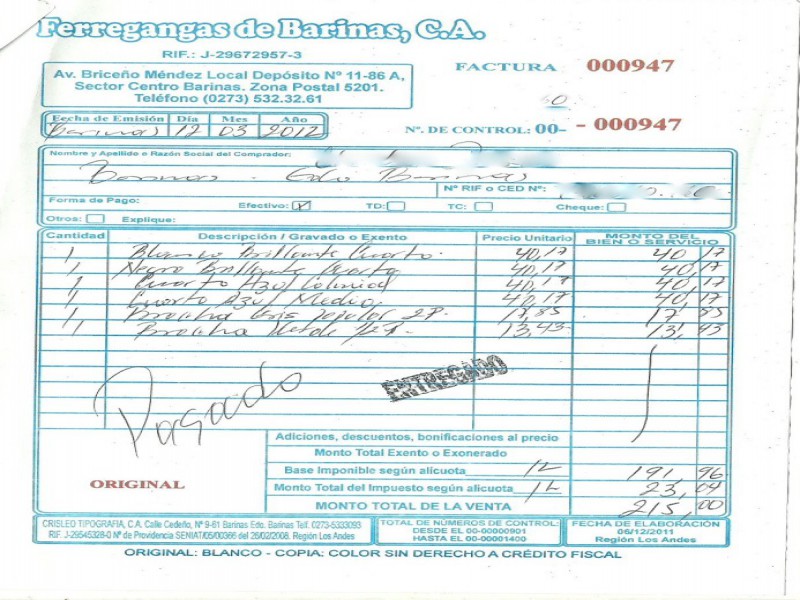 Ferregangas de Barinas, C.A.
RIF.: J-29672957-3
Av. Briceño Méndez Local Depósito Nº 11-86 A,
Sector Centro Barinas. Zona Postal 5201.
Teléfono (0273) 532.32.61
FACTURA 000947
Fecha de Emisión Día Mes Año
Barinas 12 03 2012
Nº. DE CONTROL: 00- - 000947
Nombre y Apellido o Razón Social del Comprador:
Barinas - Edo Barinas
Nº RIF o CED Nº:
Forma de Pago: Efectivo: TD: TC: Cheque:
Otros: Explique:
Cantidad Descripción / Gravado o Exento Precio Unitario MONTO DEL BIEN O SERVICIO
1 Blanco Brillante Cuarto. 40,17 40,17
1 Negro Brillante Cuarto 40,17 40,17
1 Cuarto Azul Colonial 40,17 40,17
1 Cuarto Azul Medio, 40,17 40,17
1 Brocha Gris popular 2P. 17,85 17,85
1 Brocha Verde 13,43 13,43
Pagado
ENTREGADO
Adiciones, descuentos, bonificaciones al precio
Monto Total Exento o Exonerado
Base Imponible según alicuota 12 191,96
Monto Total del Impuesto según alicuota 12 23,04
MONTO TOTAL DE LA VENTA 215,00
ORIGINAL
CRISLEO TIPOGRAFIA, C.A. Calle Cedeño, Nº 9-61 Barinas Edo. Barinas Telf. 0273-5333093
RIF. J-29545328-0 Nº de Providencia SENIAT/05/00366 del 26/02/2008. Región Los Andes
TOTAL DE NÚMEROS DE CONTROL:
DESDE EL 00-00000901
HASTA EL 00-00001400
FECHA DE ELABORACIÓN
06/12/2011
Región Los Andes
ORIGINAL: BLANCO - COPIA: COLOR SIN DERECHO A CRÉDITO FISCAL